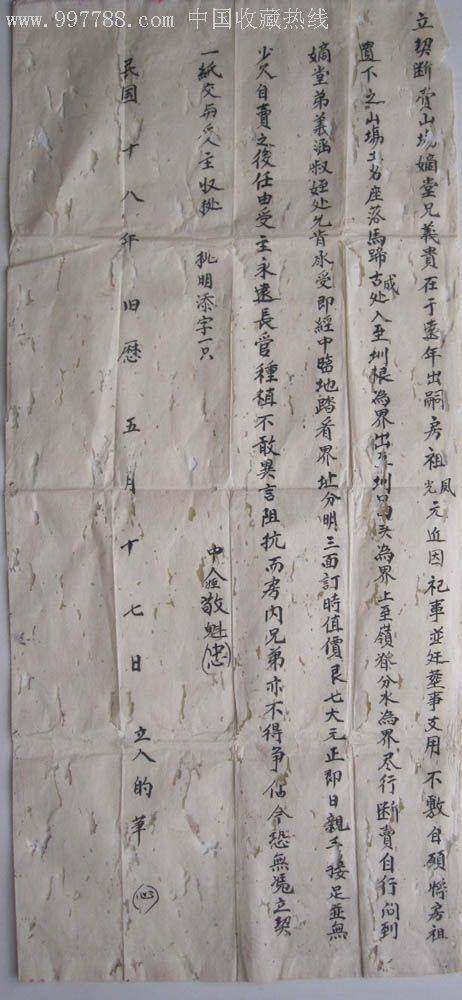 www.997788.com 中国收藏热线
立契断賣山塲嫡堂兄義貴在于遠年出嗣房祖鳳光元近因祀事並延葬事支用不敷自願將房祖
遺下之山塲土名座落馬蹄古成处入至圳根為界出至圳為界上至嶺發分水為界尽行断賣自行问到
嫡堂弟義涵叔姪处允肯承受即經中臨地踏看界址分明三面訂時值價艮七大元正即日親手接足並無
少欠自賣之後任由受主永遠長管種植不敢異言阻抗而房内兄弟亦不得争佔今恐無凴立契
一紙交与受人主收执 批明添字一只
中人敬魁忠
民国十八年旧歷五月十七日 立人的筆